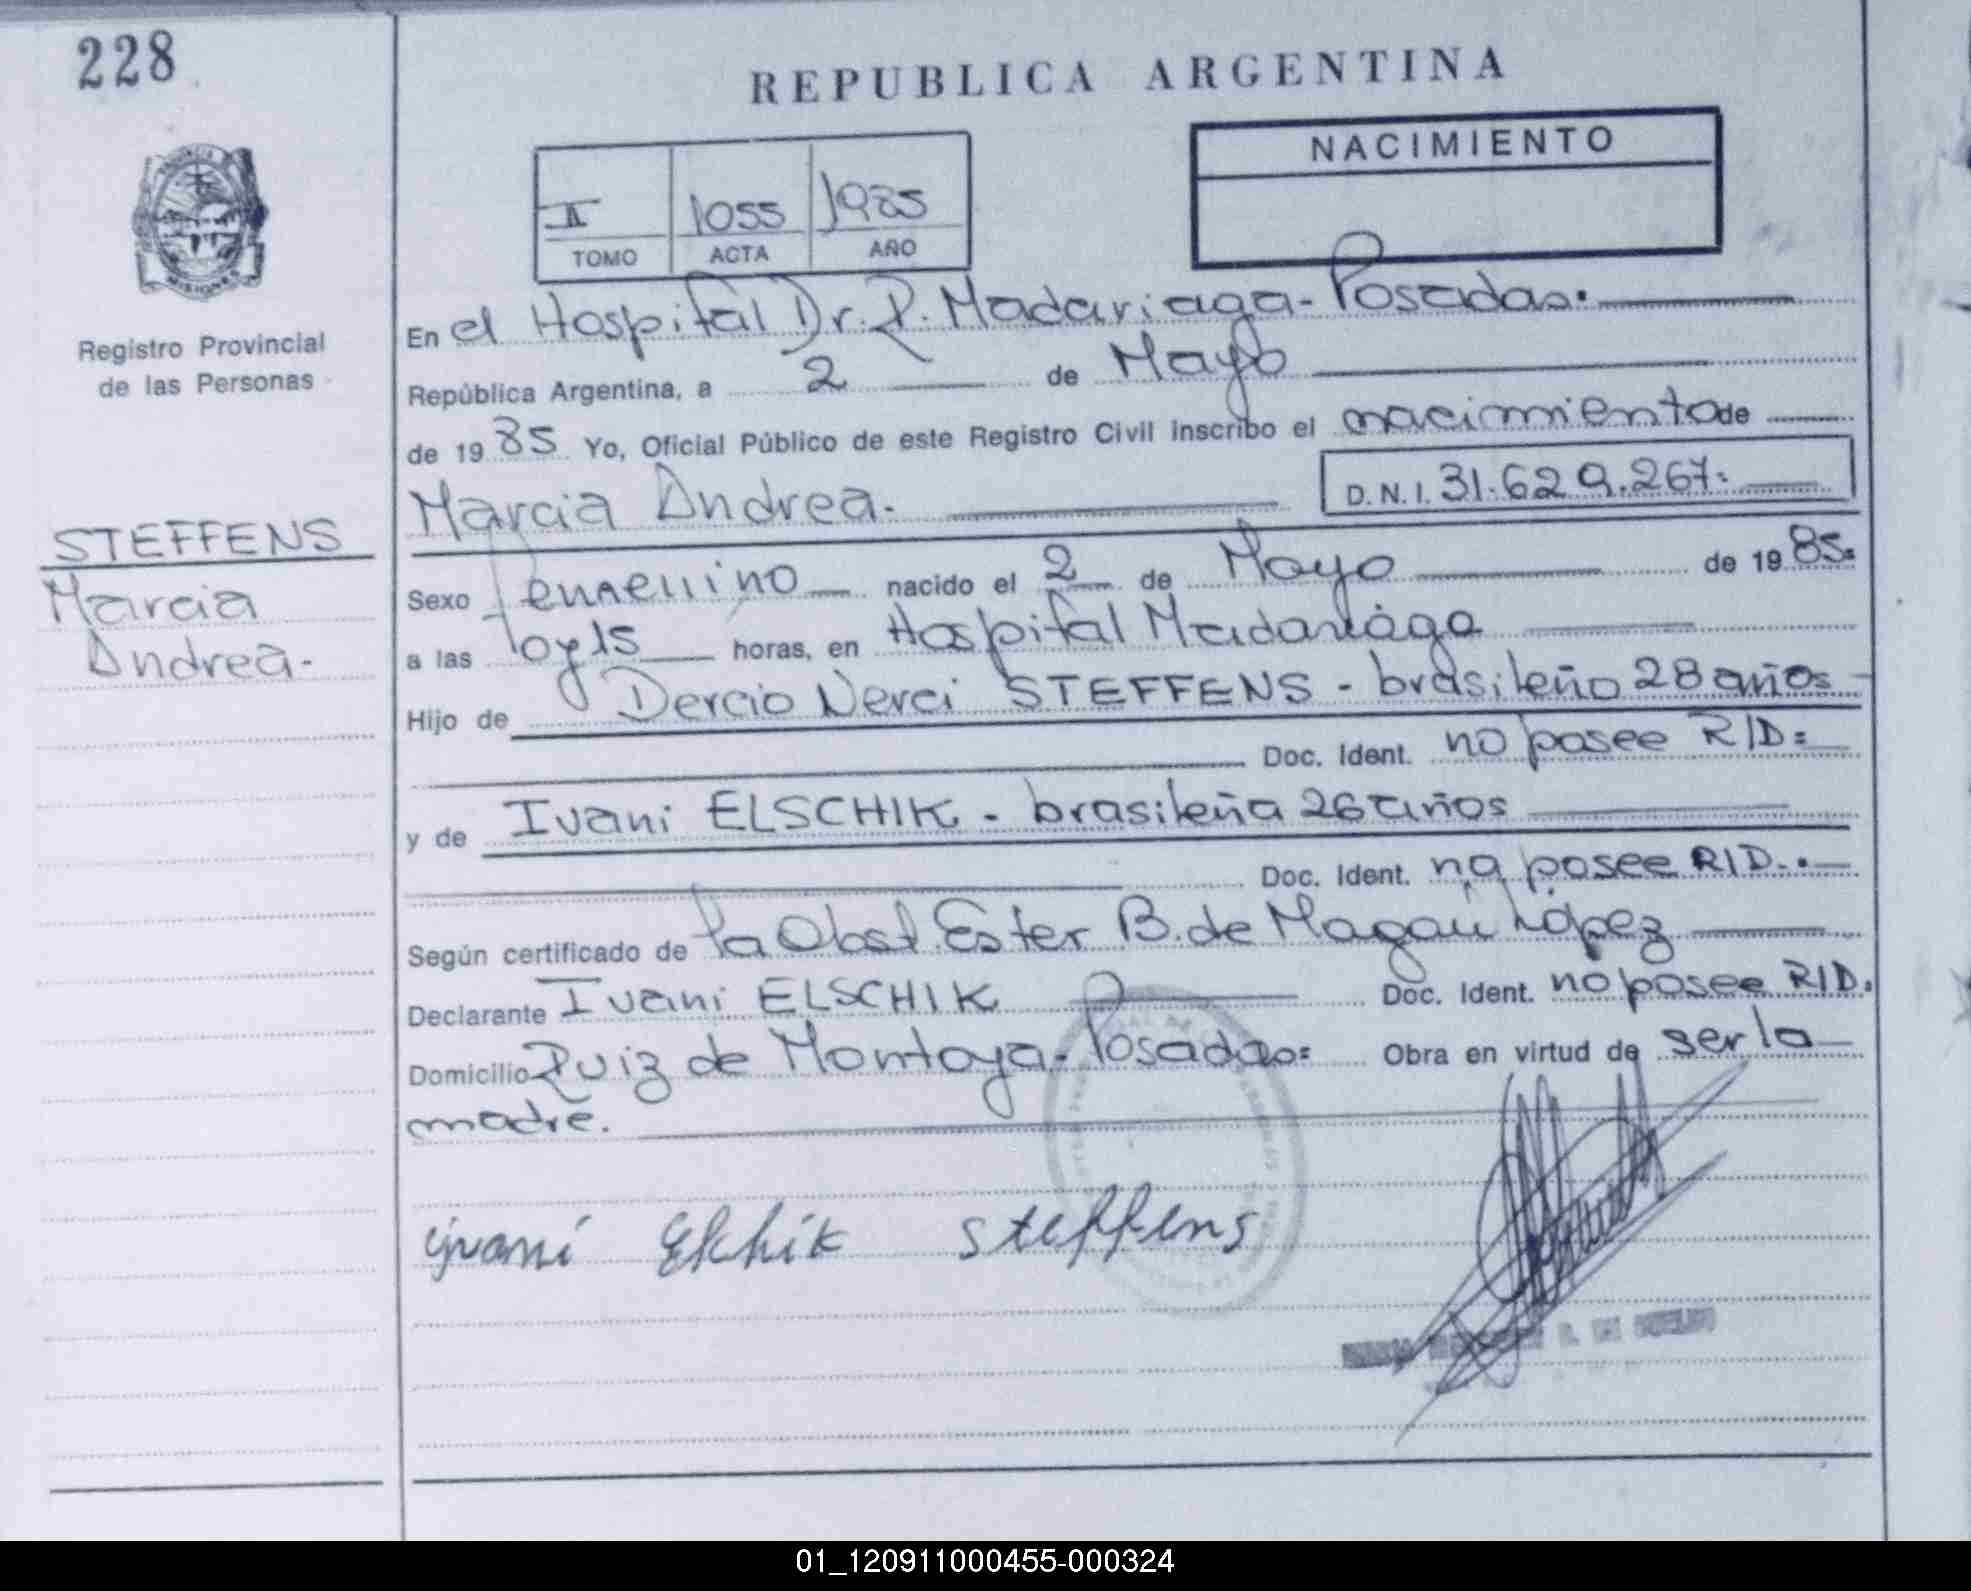 228
REPUBLICA ARGENTINA
NACIMIENTO
II 1055 1985
TOMO ACTA AÑO
PROVINCIA
MISIONES
Registro Provincial
de las Personas
STEFFENS
Marcia
Andrea.-
En el Hospital Dr. R. Madariaga - Posadas.
República Argentina, a 2 de Mayo
de 1985 Yo, Oficial Público de este Registro Civil inscribo el nacimiento de
Marcia Andrea. D.N.I. 31.629.267.
Sexo Femenino nacido el 2 de Mayo de 1985.
a las 10y15 horas, en Hospital Madariaga
Hijo de Dercio Nerci STEFFENS - brasileño 28 años
Doc. Ident. no posee RID.
y de Ivani ELSCHIK - brasileña 26 años
Doc. Ident. no posee RID.
Según certificado de la Obst. Ester B. de López
Declarante Ivani ELSCHIK Doc. Ident. no posee RID.
Domicilio Ruiz de Montoya - Posadas. Obra en virtud de ser la
madre.
ivani Elchik steffens
01_120911000455-000324